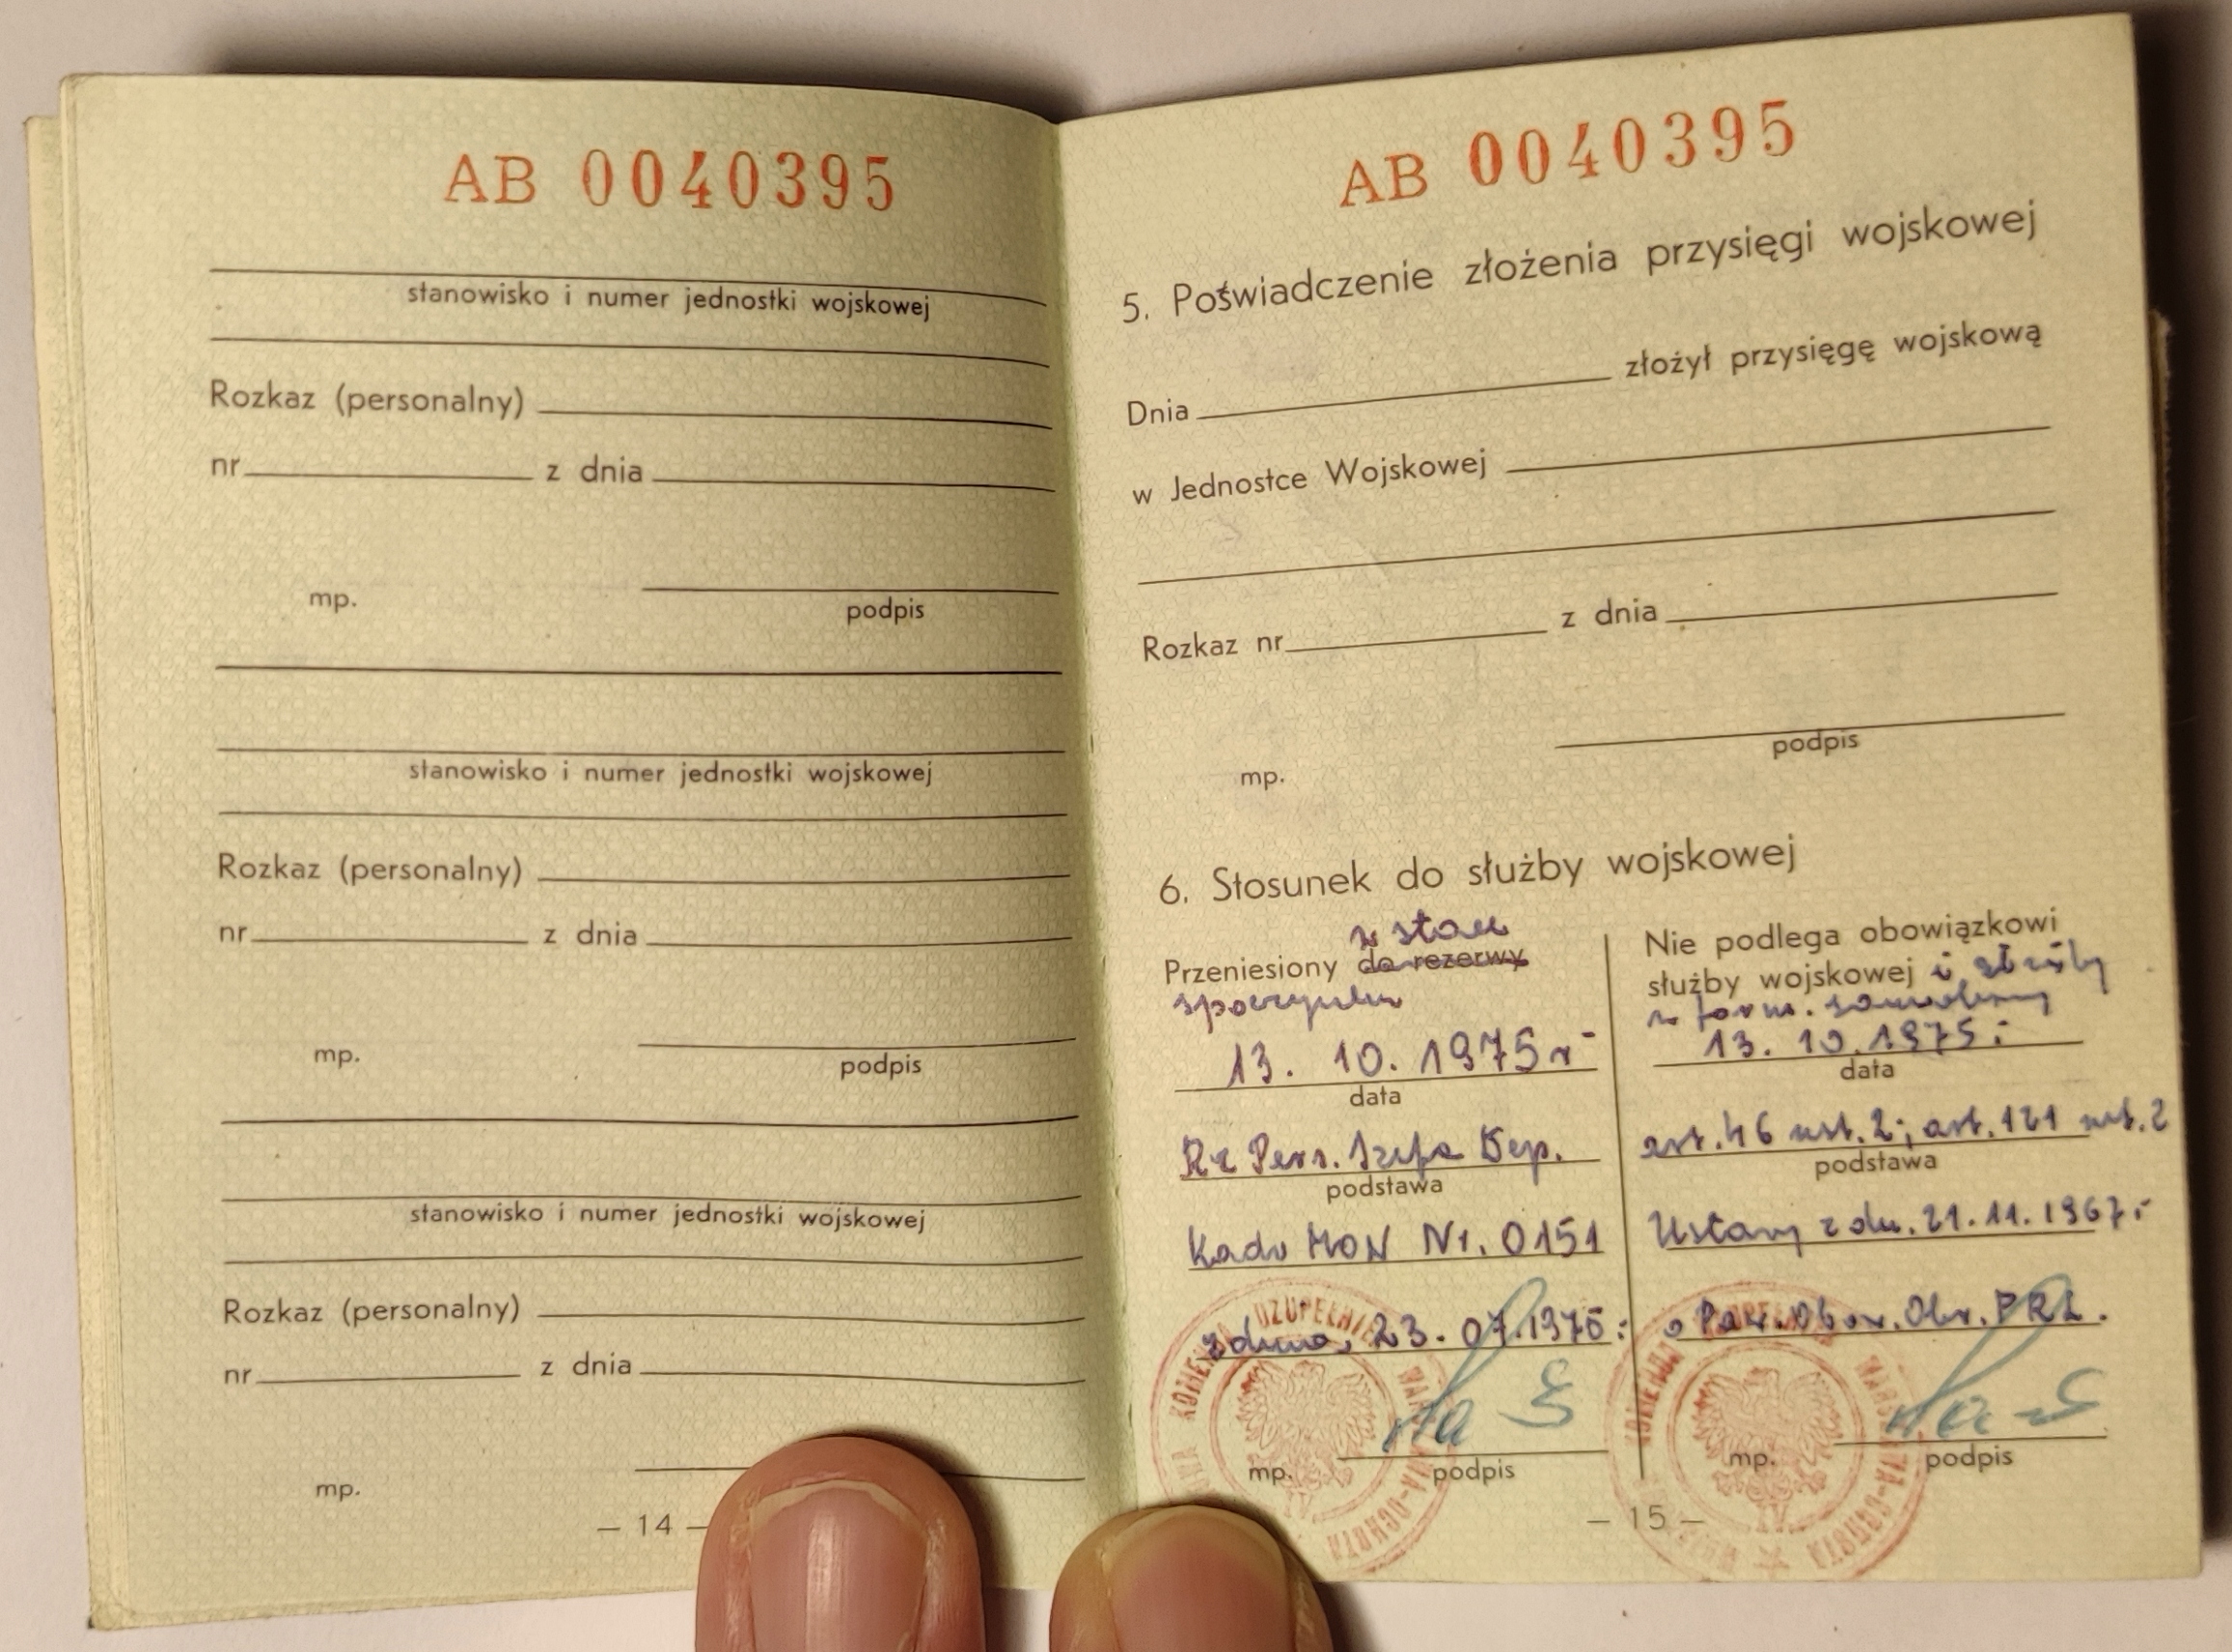 AB 0040395
stanowisko i numer jednostki wojskowej
Rozkaz (personalny)
nr z dnia
mp. podpis
stanowisko i numer jednostki wojskowej
Rozkaz (personalny)
nr z dnia
mp. podpis
stanowisko i numer jednostki wojskowej
Rozkaz (personalny)
nr z dnia
mp.
— 14 —
AB 0040395
5. Poświadczenie złożenia przysięgi wojskowej
Dnia złożył przysięgę wojskową
w Jednostce Wojskowej
Rozkaz nr z dnia
podpis
mp.
6. Stosunek do służby wojskowej
w stan
Przeniesiony do rezerwy
spoczynku
13. 10. 1975 r
data
Rz Pers. Szefa Dep.
podstawa
Kadr MON Nr. 0151
z dnia, 23.07.1975
mp. podpis
Nie podlega obowiązkowi
służby wojskowej i służby
w form. samoobrony
13. 10. 1975
data
art. 46 ust. 2; art. 121 ust. 2
podstawa
Ustawy z dn. 21.11.1967
o Pow. Obow. Obr. PRL.
mp. podpis
— 15 —